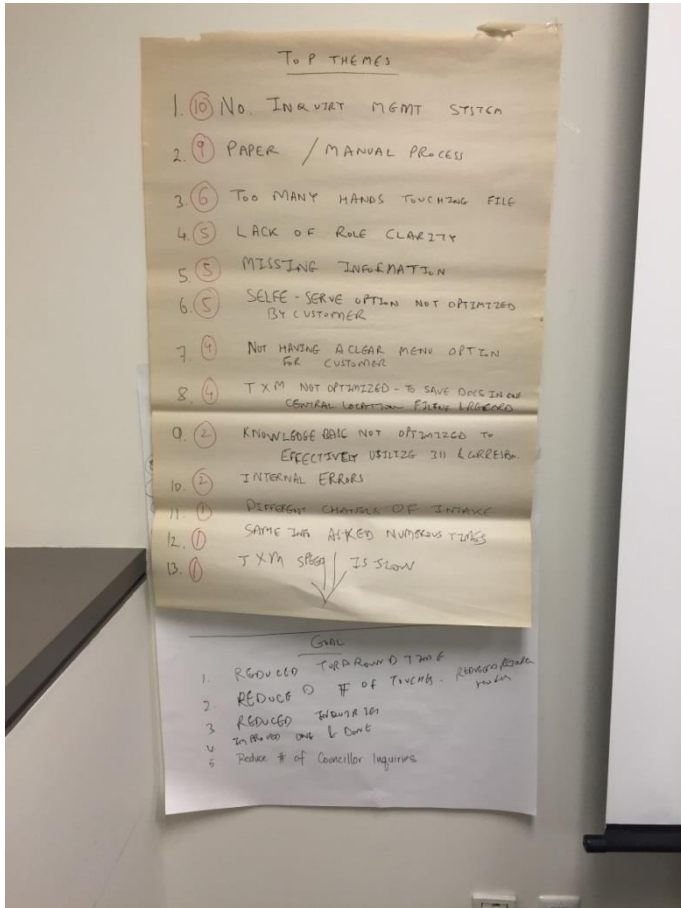 TOP THEMES
1. 10 NO. INQUIRY MGMT SYSTEM
2. 9 PAPER / MANUAL PROCESS
3. 6 TOO MANY HANDS TOUCHING FILE
4. 5 LACK OF ROLE CLARITY
5. 5 MISSING INFORMATION
6. 5 SELFE-SERVE OPTION NOT OPTIMIZED
BY CUSTOMER
7. 4 NOT HAVING A CLEAR MENU OPTION
FOR CUSTOMER
8. 4 TXM NOT OPTIMIZED - TO SAVE DOCS IN ONE
CENTRAL LOCATION
9. 2 KNOWLEDGE BASE NOT OPTIMIZED TO
EFFECTIVELY UTILIZE 311 &
10. 2 INTERNAL ERRORS
11. 1 DIFFERENT CHANNELS OF INTAKE
12. 1 SAME INFO ASKED NUMEROUS TIMES
13. 1 TXM SPEED IS SLOW
GOAL
1. REDUCED TURNAROUND TIME
2. REDUCED # OF TOUCHES. REDUCED
3 REDUCED INQUIRIES
4 IMPROVED ONE & DONE
5 Reduce # of Councillor Inquiries